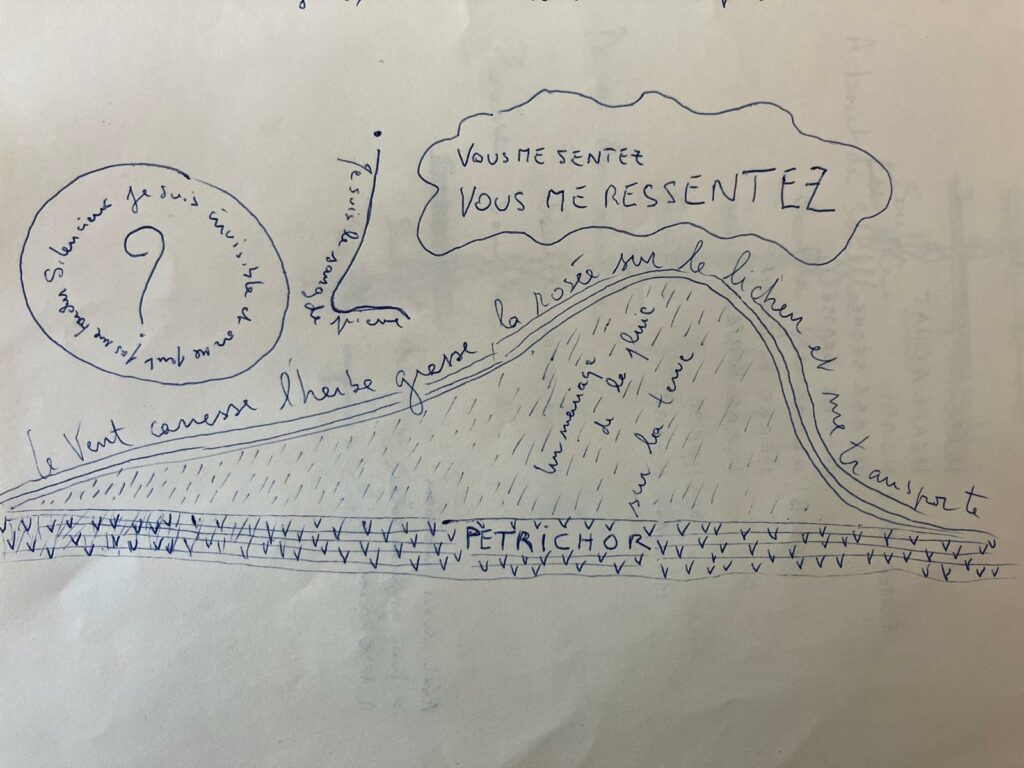 Silencieux je suis invisible et on ne peut pas me toucher
?
je suis le sang de
pierre
VOUS ME SENTEZ
VOUS ME RESSENTEZ
le Vent caresse l'herbe grasse la rosée sur le lichen et me transporte
Un mariage
de la pluie
sur la terre
PÉTRICHOR